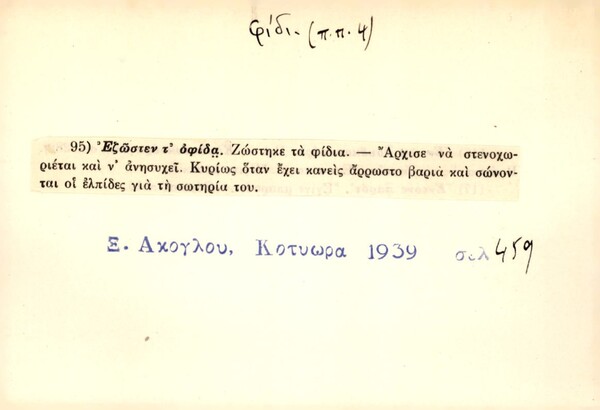 φίδι. (π.π. 4)
95) Ἐζῶστεν τ' ὀφίδα̤. Ζώστηκε τὰ φίδια. — Ἄρχισε νὰ στενοχω-
ριέται καὶ ν' ἀνησυχεῖ. Κυρίως ὅταν ἔχει κανεὶς ἄρρωστο βαριὰ καὶ σώνον-
ται οἱ ἐλπίδες γιὰ τὴ σωτηρία του.
Ξ. Ακογλου, Κοτυωρα 1939 σελ 459